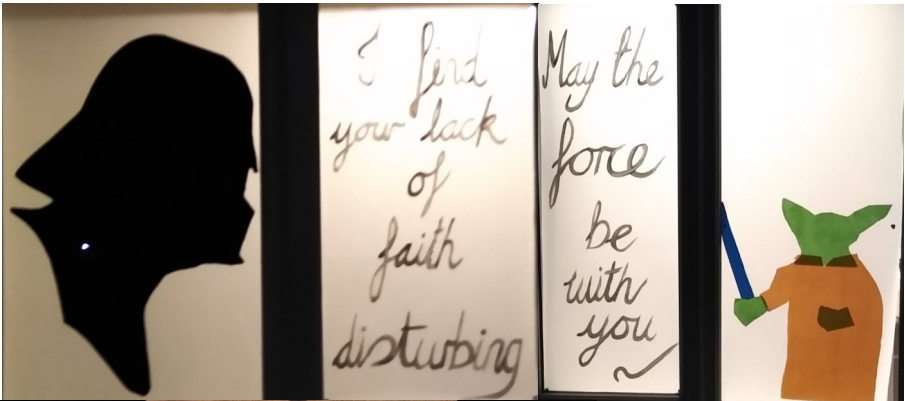 I find
your lack
of
faith
disturbing
May the
force
be
with
you